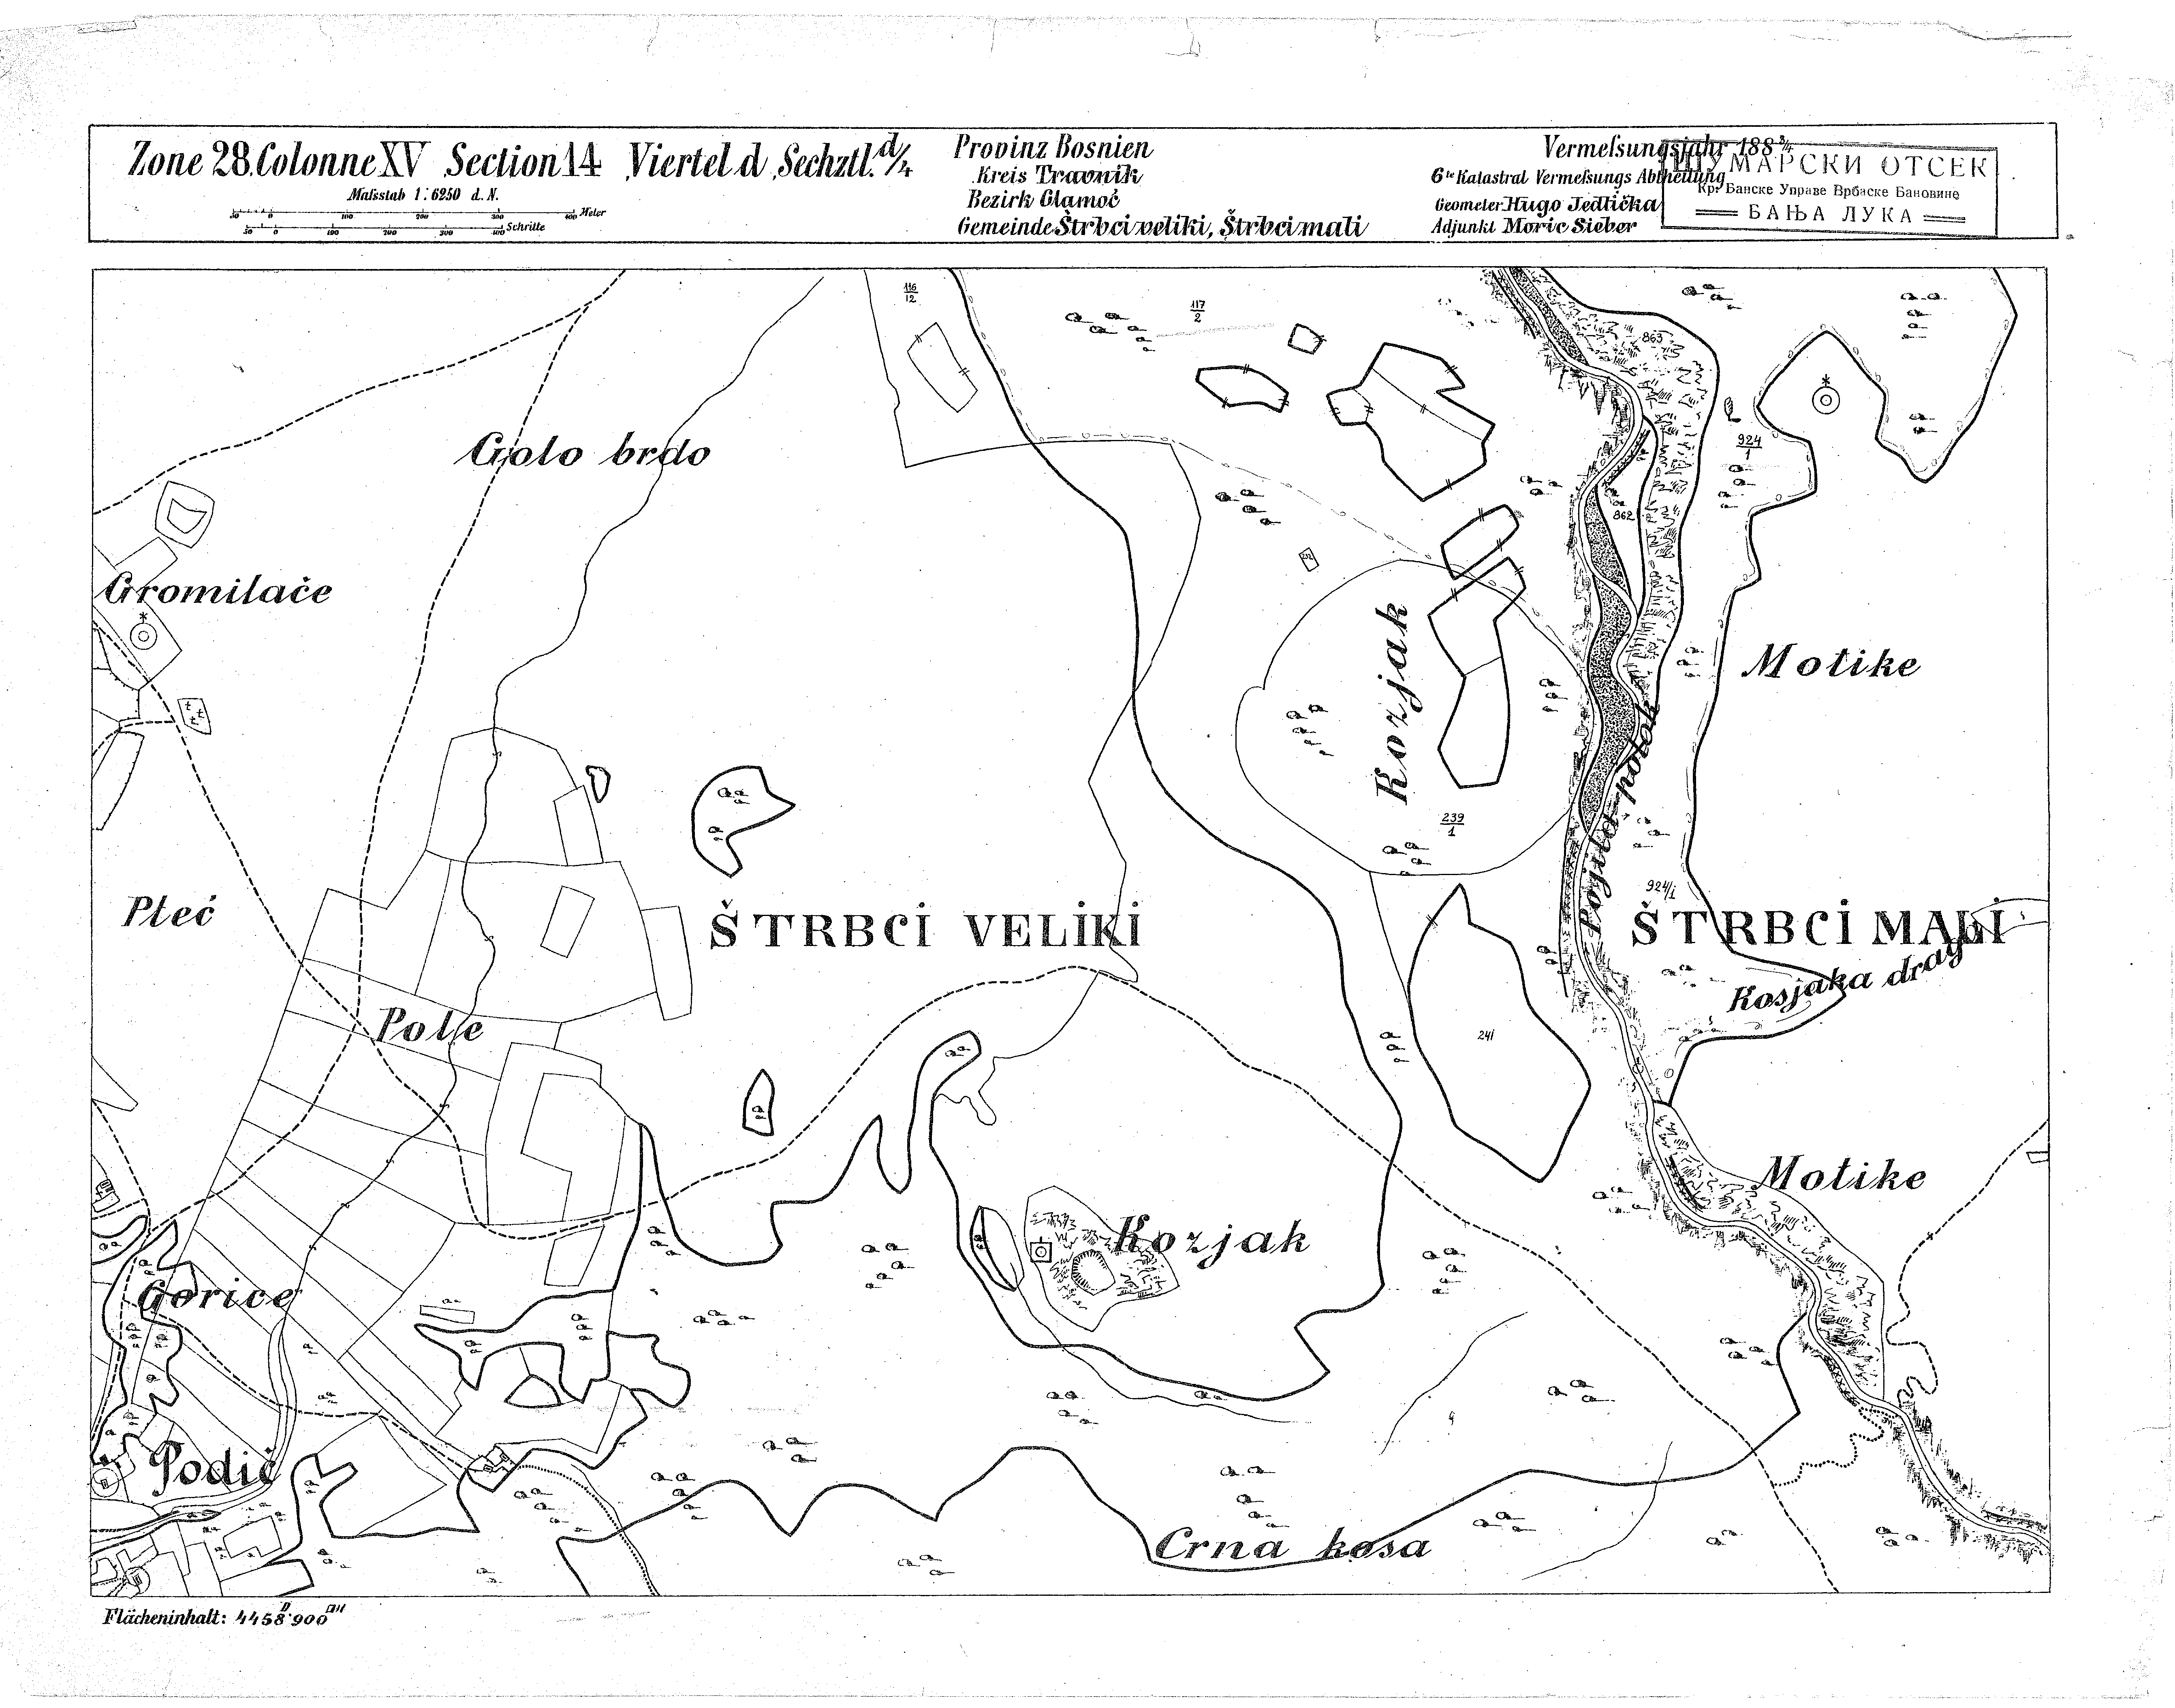 Zone 28. Colonne XV Section 14 Viertel d Sechztl. d/4
Masstab 1:6250 d. N.
50 0 100 200 300 400 Meter
50 0 100 200 300 400 Schritte
Provinz Bosnien
Kreis Travnik
Bezirk Glamoč
Gemeinde Štrbci veliki, Štrbci mali
Vermeſsungsjahr 188¾
6te Katastral Vermeſsungs Abtheilung
Geometer Hugo Jedlička
Adjunkt Moric Sieber
ШУМАРСКИ ОТСЕК
Кр. Банске Управе Врбаске Бановине
БАЊА ЛУКА
116/12
117/2
863
924/1
Golo brdo
862
Gromilače
Kozjak
Motike
239/1
Pleć
924/1
ŠTRBCİ VELİKİ
ŠTRBCİ MALİ
Kosjaka draga
Pole
241
Motike
Kozjak
Gorice
Podić
Crna kosa
Flächeninhalt: 4458 D 900